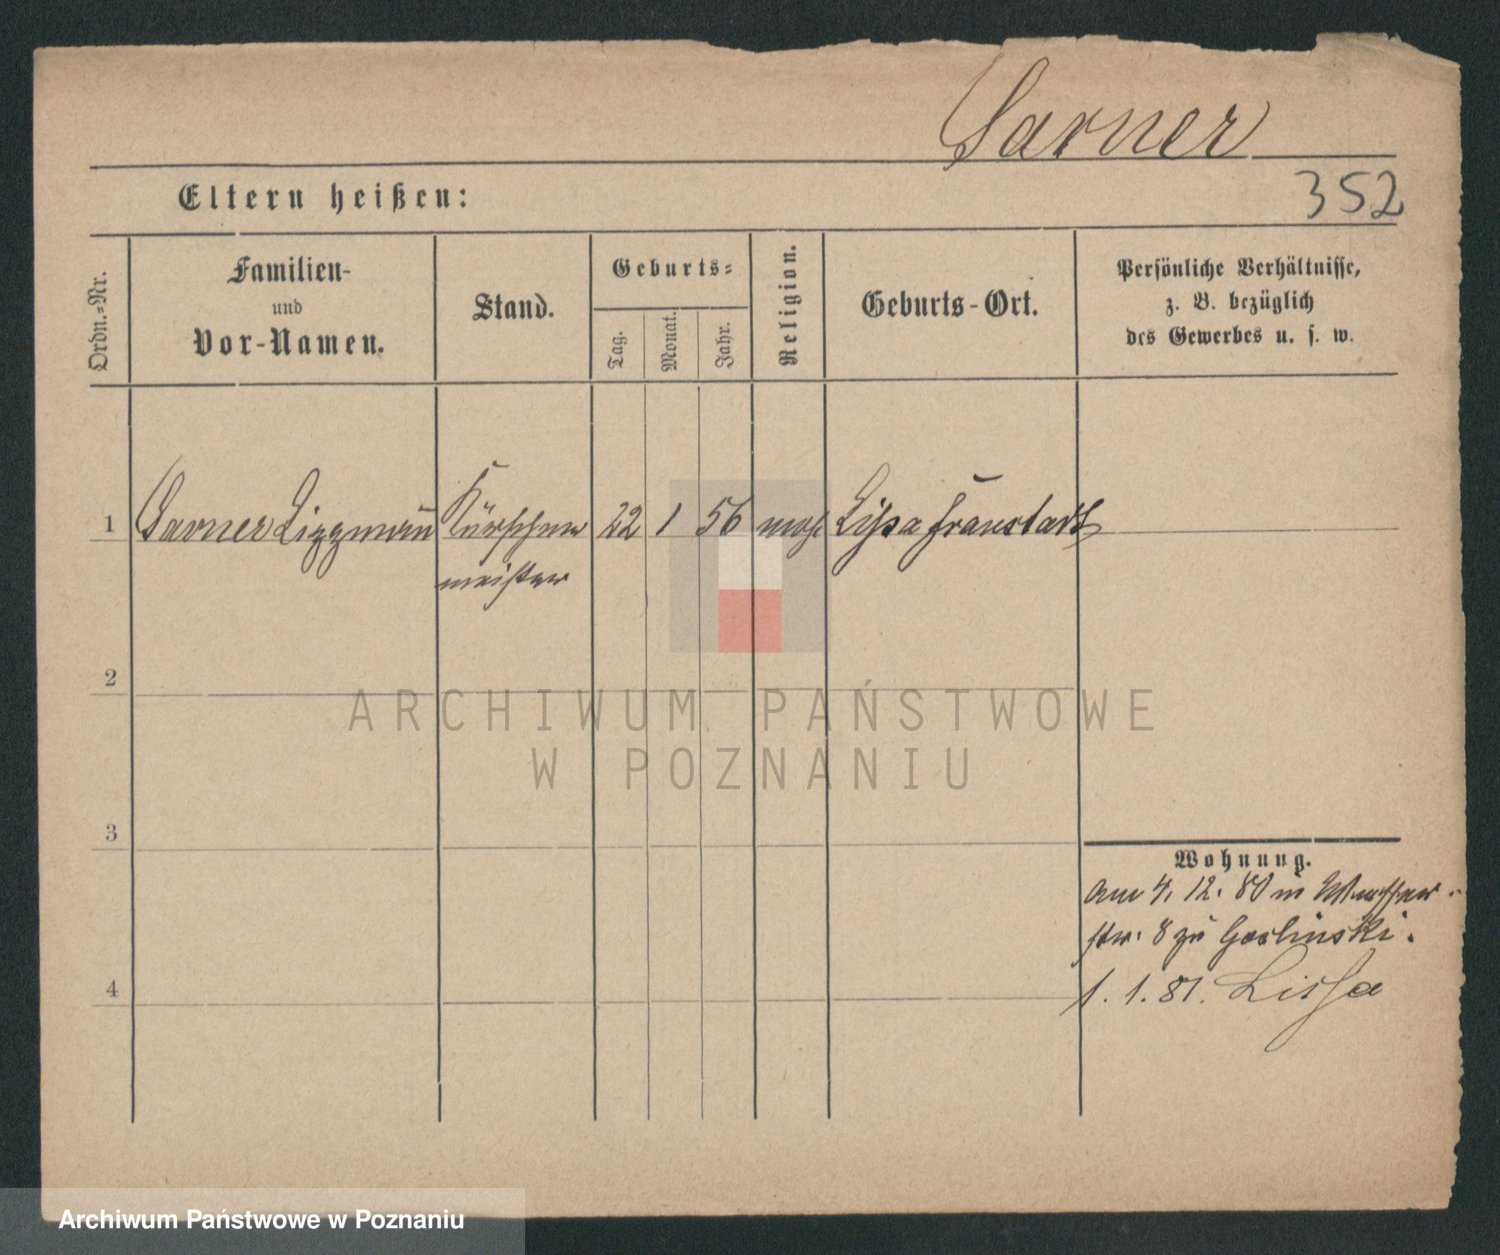 Sarner
352
Eltern heißen:
Ordn.-Nr.
Familien-
und
Vor-Namen.
Stand.
Geburts-
Tag.
Monat.
Jahr.
Religion.
Geburts-Ort.
Persönliche Verhältnisse,
z. B. bezüglich
des Gewerbes u. s. w.
1 Sarner Kürschner 22 1 56 mos. Lissa Fraustadt
meister
2
3
4
Wohnung.
am 4. 12. 80 in
str. 8 zu Goslinski.
1. 1. 81. Lissa
ARCHIWUM PAŃSTWOWE
W POZNANIU
Archiwum Państwowe w Poznaniu